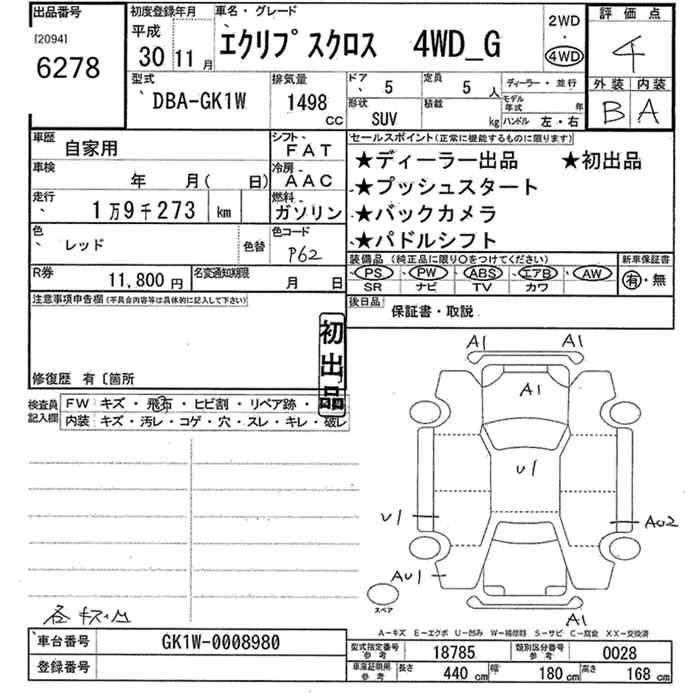 出品番号 初度登録年月 車名・グレード 2WD 評価点
[2094] 平成
6278 30年 11月 エクリプスクロス 4WD_G 4WD 4
型式 排気量 ドア 定員 ディーラー・並行 外装 内装
DBA-GK1W 1498 cc 5 5 人 モデル年式 年 B A
形状 積載
SUV kg ハンドル 左・右
車歴 自家用 シフト FAT セールスポイント(正常に機能するものに限ります)
★ディーラー出品 ★初出品
車検 年 月( 日) 冷房 AAC ★プッシュスタート
走行 1万9千273 km 燃料 ガソリン ★バックカメラ
色 レッド 色替 色コード P62 ★パドルシフト
装備品(純正品に限り○をつけてください) 新車保証書
PS PW ABS エアB AW 有・無
SR ナビ TV カワ
R券 11,800円 名変通知期限 月 日
注意事項申告欄(不具合内容等は具体的に記入して下さい) 後日品 保証書・取説
初出品
修復歴 有〔箇所
検査員記入欄 FW キズ・飛石・ヒビ割・リペア跡・
内装 キズ・汚レ・コゲ・穴・スレ・キレ・破レ
A1 A1
A1
U1
U1 AU2
AU1
スペア
A1
A-キズ E-エクボ U-凹み W-補修跡 S-サビ C-腐食 XX-交換済
車台番号 GK1W-0008980
型式指定番号 参考 18785 類別区分番号 参考 0028
登録番号
車庫証明用 参考 長さ 440 cm 幅 180 cm 高さ 168 cm